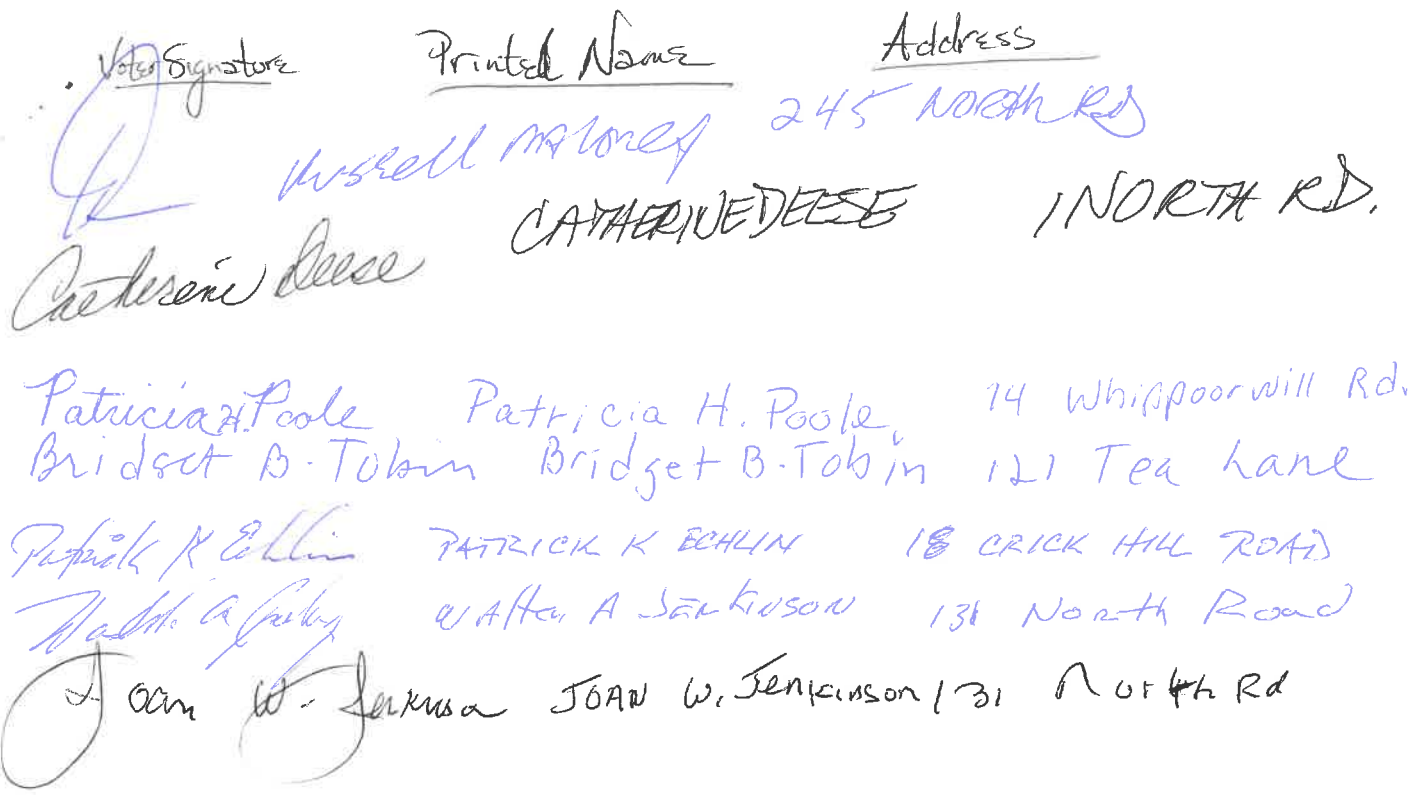 Voter Signature Printed Name Address
Russell Maloney 245 North Rd
Catherine Deese CATHERINE DEESE 1 NORTH RD.
Patricia H. Poole Patricia H. Poole 14 Whippoorwill Rd.
Bridget B. Tobin Bridget B. Tobin 121 Tea Lane
Patrick K Echlin PATRICK K ECHLIN 18 CRICK HILL ROAD
Walter A Jenkinson 131 North Road
Joan W. Jenkinson JOAN W. Jenkinson 131 North Rd